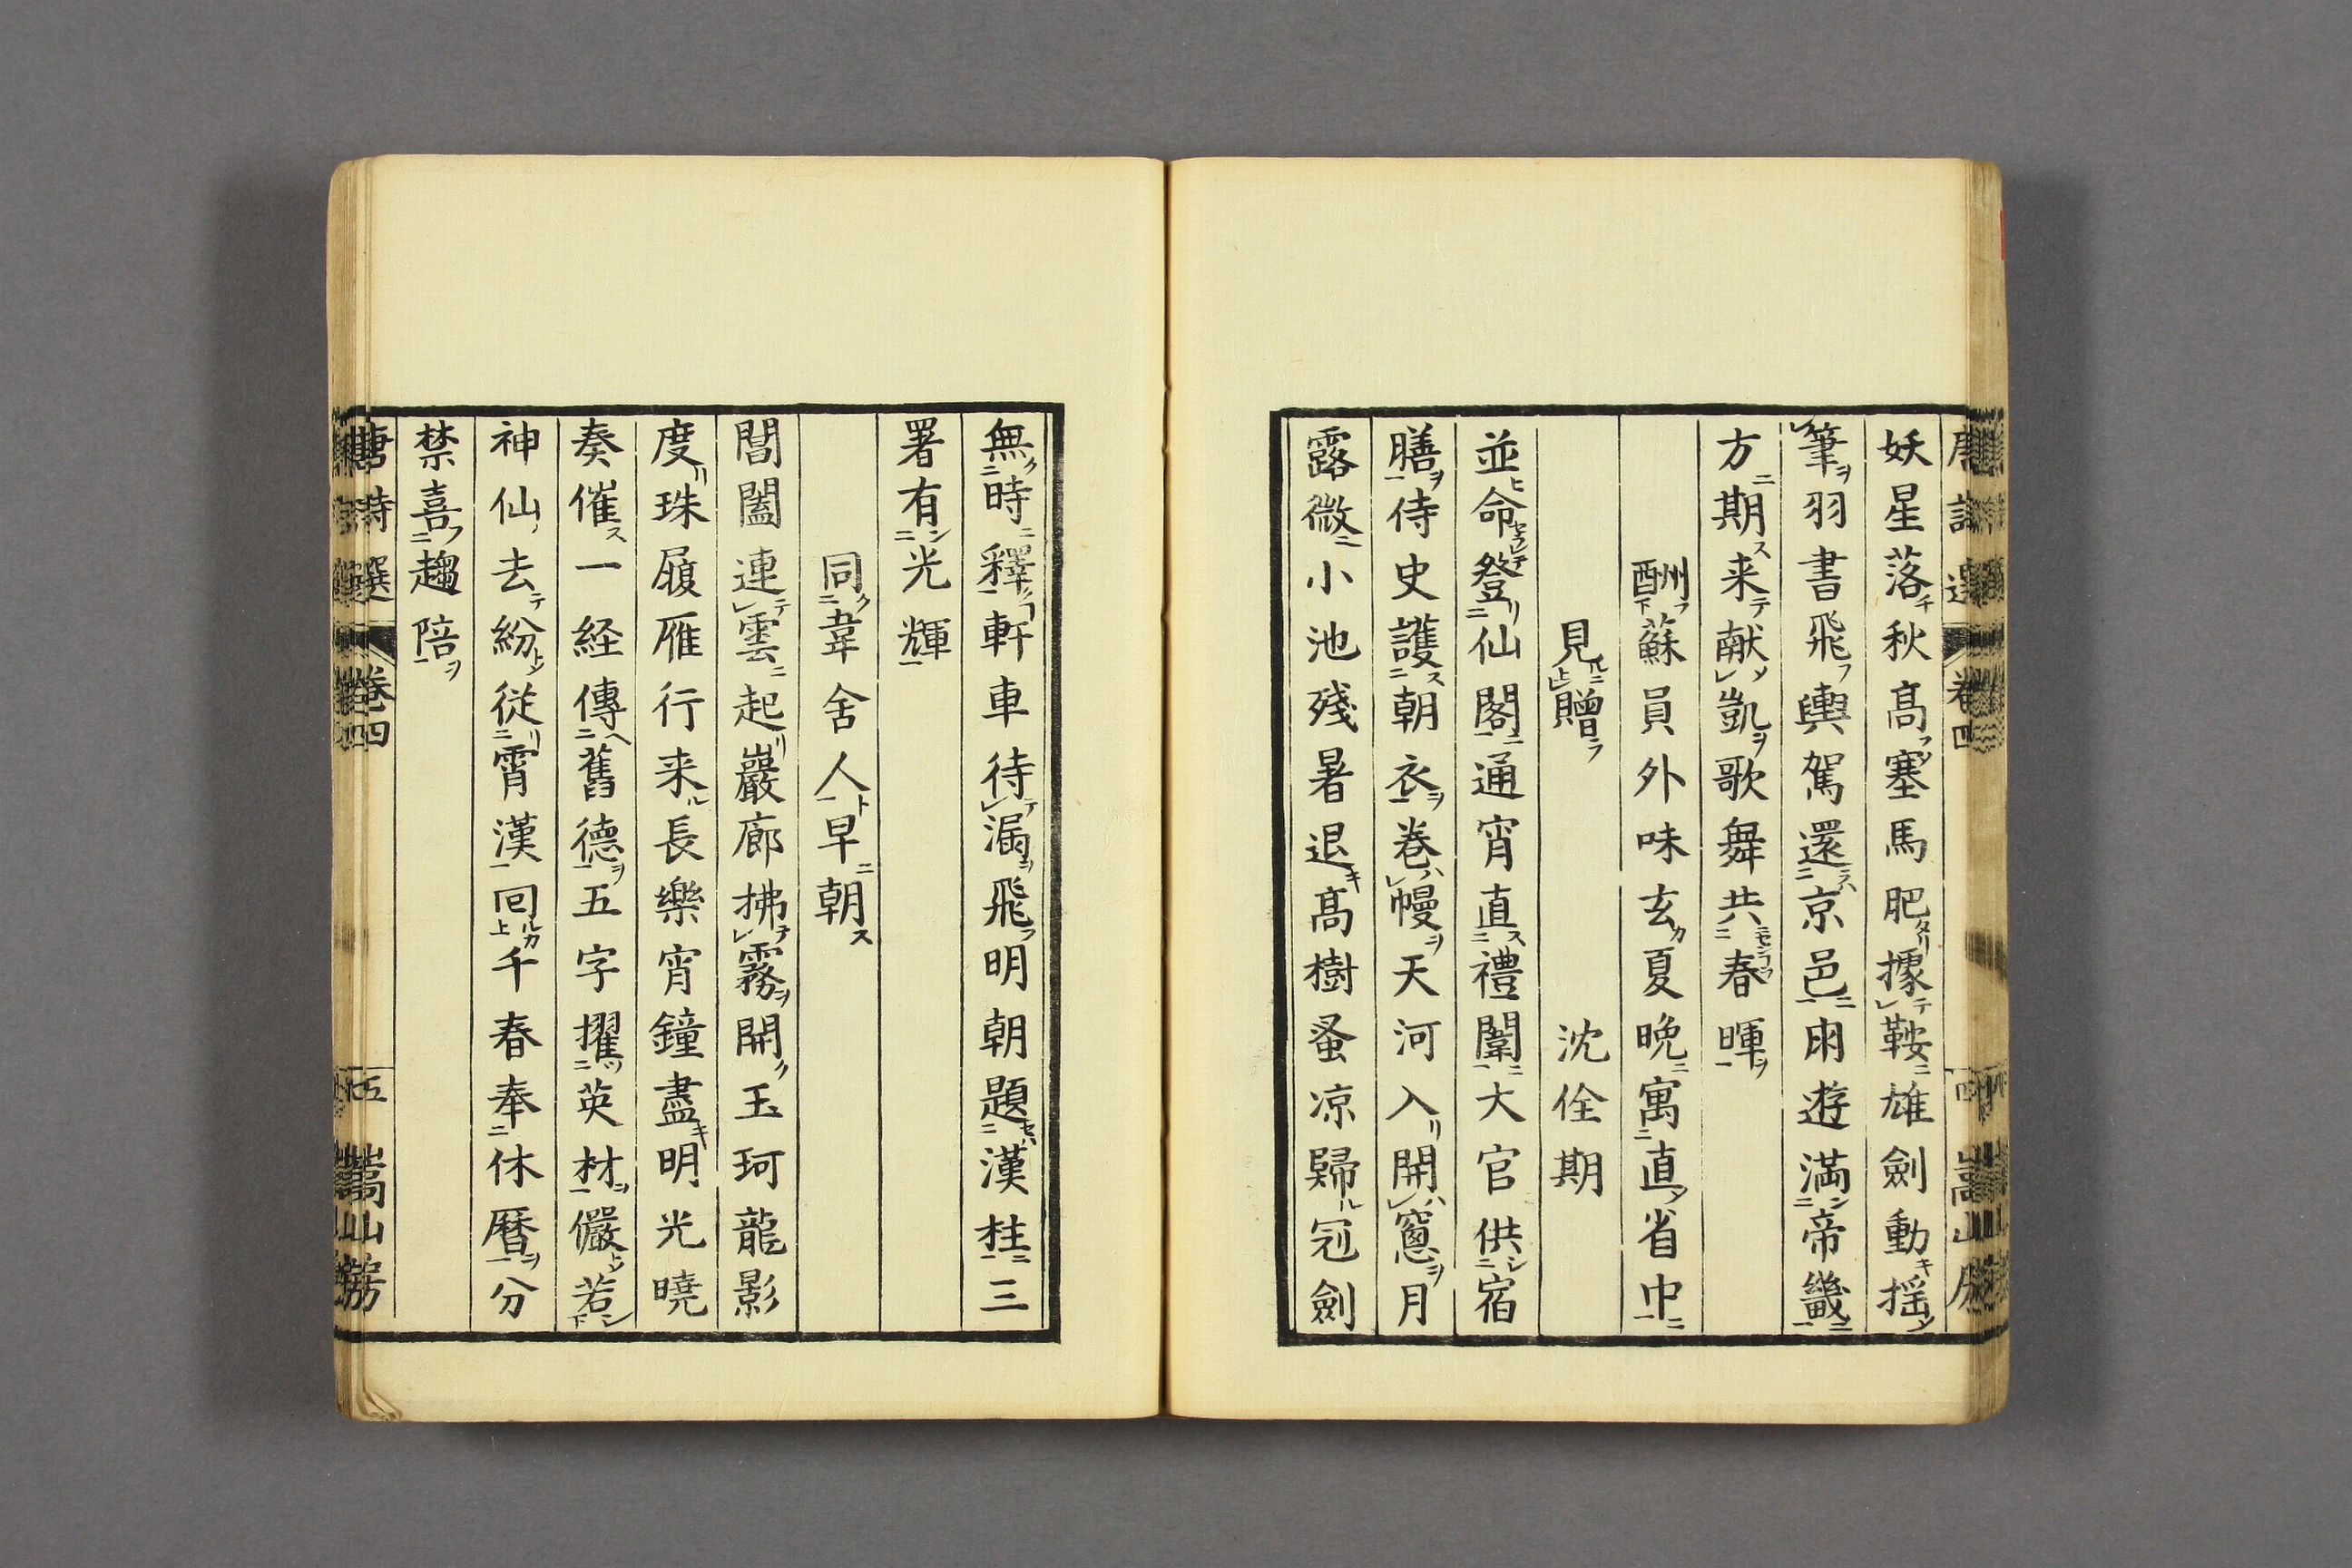 妖星落秋高塞馬肥據鞍雄劍動揺
筆羽書飛輿駕還京邑朋遊満帝畿
方期来献凱歌舞共春暉
酬蘇員外味玄夏晩寓直省中
見贈　沈佺期
並命登仙閣通宵直禮闈大官供宿
膳侍史護朝衣巻幔天河入開窻月
露微小池殘暑退高樹蚤凉歸冠劍
無時釋軒車待漏飛明朝題漢柱三
署有光輝
同韋舍人早朝
閶闔連雲起巖廊拂霧開玉珂龍影
度珠履雁行来長樂宵鐘盡明光曉
奏催一経傳舊德五字擢英材儼若
神仙去紛從霄漢回千春奉休曆分
禁喜趨陪
唐詩選　卷四　五　嵩山房